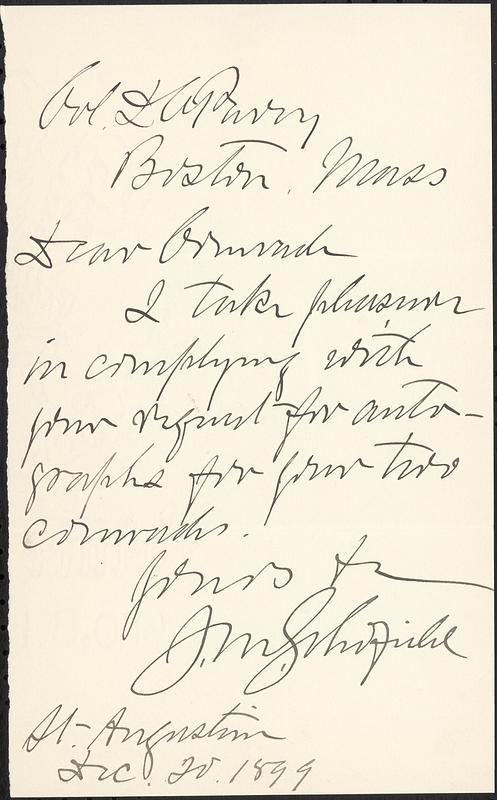 Col. D. A. Perry
Boston, Mass
Dear Comrade
I take pleasure
in complying with
your request for auto-
graphs for your two
comrades.
Yours &c
J.M. Schofield
St. Augustine
Dec. 20. 1899